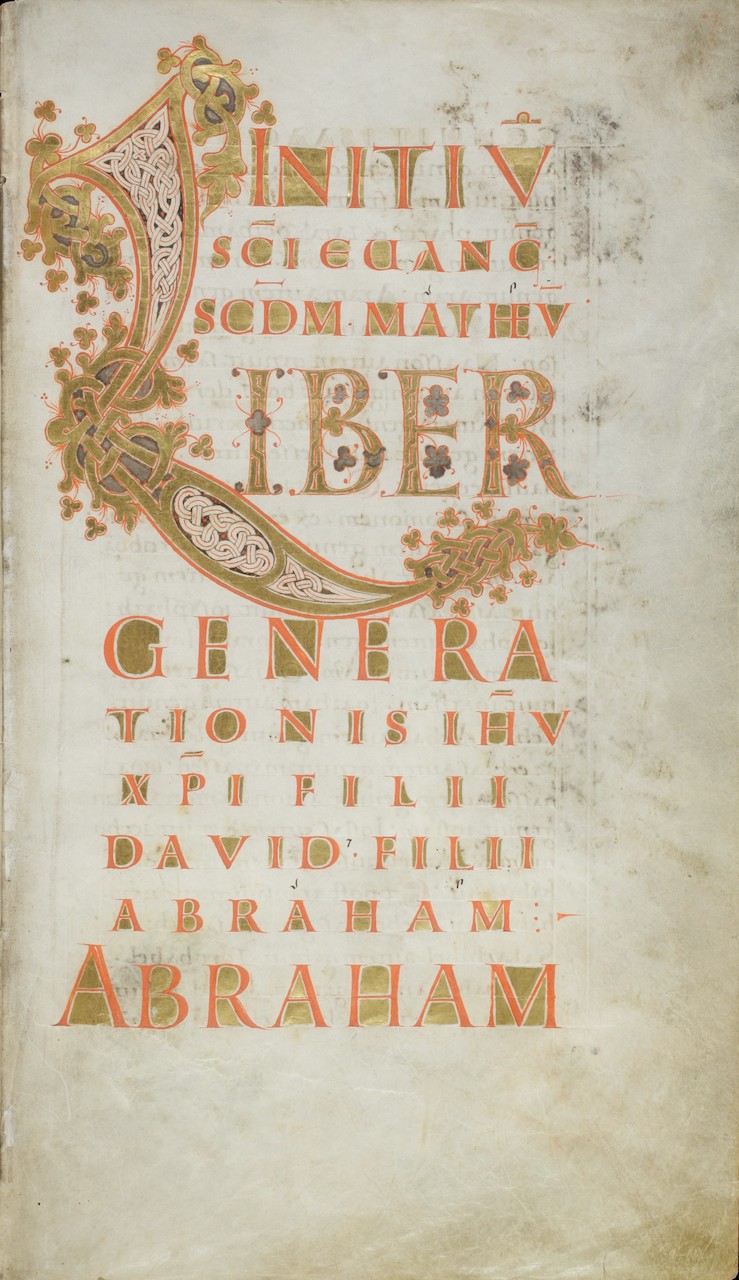 INITIV̄
SC̄I EUANḠ
SCD̄M·MATHEV̄
LIBER
GENERA
TIONIS IH̄V
XP̄I FILII
DAVID·FILII
ABRAHAM:
ABRAHAM